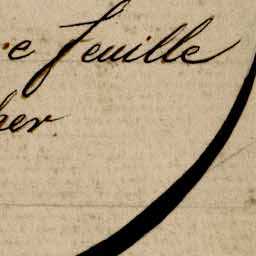 e feuille
her